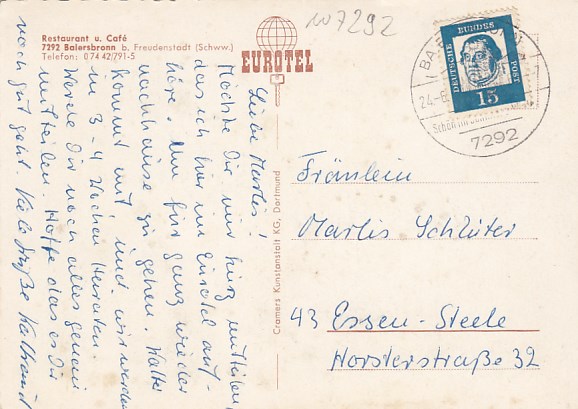 Restaurant u. Café
7292 Baiersbronn b. Freudenstadt (Schww.)
Telefon: 0 74 42/791-5
EUROTEL
7292
DEUTSCHE BUNDESPOST
15
24.-8.
7292
Liebe Marlis!
Möchte Dir nur kurz mitteilen,
das ich hier im Eurotel auf-
höre. Um für ganz wieder
nachhause zu gehen. Walter
kommt mit, und wir werden
in 3-4 Wochen Heiraten.
Werde Dir noch alles genau
mitteilen. Hoffe das es Dir
noch gut geht. Viele Grüße Waltraud
Cramers Kunstanstalt KG, Dortmund
Fräulein
Marlis Schlüter
43 Essen-Steele
Horsterstraße 32